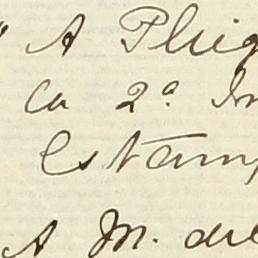 " A Plieg
Ca 2ª In
Estamp
A M. del